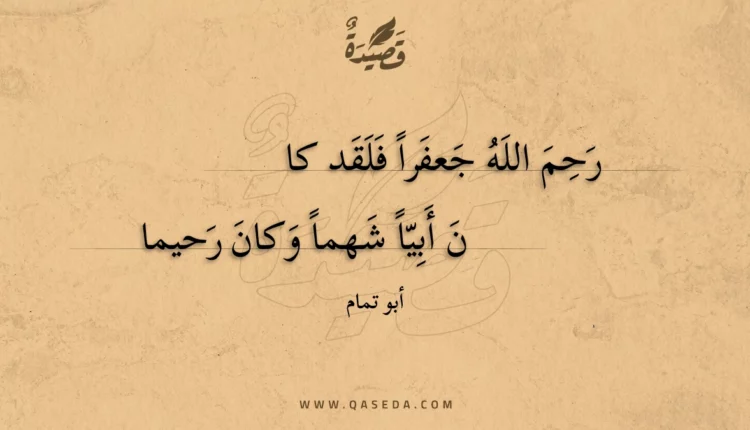 قَصِيدَةٌ
رَحِمَ اللَهُ جَعفَراً فَلَقَد كا
نَ أَبِيّاً شَهماً وَكانَ رَحيما
أبو تمام
WWW.QASEDA.COM